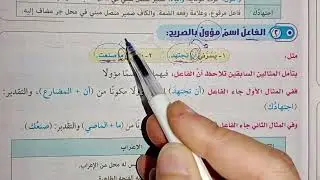 اجتهادك
فاعل مرفوع، وعلامة رفعه الضمة، والكاف ضمير متصل مبني في محل جر مضاف إليه
٢ الفاعل اسم مؤول بالصريح:
مثل: ١- يسرني أن تجتهد ٢- ما صنعت
بتأمل المثالين السابقين تلاحظ أن الفاعل مؤولًا
ففي المثال الأول جاء الفاعل مكونًا من (أن + المضارع)، والتقدير:
اجتهادك
وفي المثال الثاني جاء الفاعل مكونًا من (ما + الماضي) والتقدير: صنعك).
الإعراب